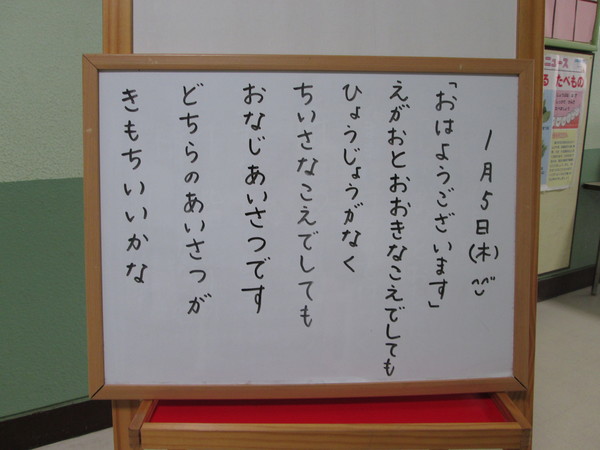 1月5日(木)
「おはようございます」
えがおとおおきなこえでしても
ひょうじょうがなく
ちいさなこえでしても
おなじあいさつです
どちらのあいさつが
きもちいいかな
たべもの